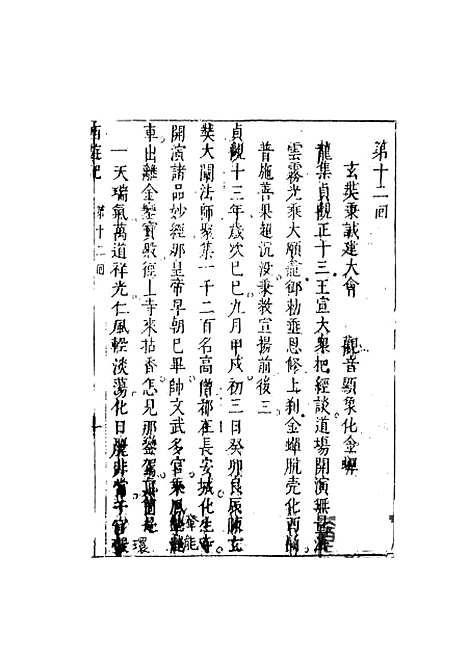 第十二回
玄奘秉誠建大會　觀音顯象化金蟬
龍集貞觀正十三王宣大衆把經談道塲開演無
雲霧光乘大願龕御勑垂恩修上刹金蟬脫壳化西
普施善果超沉没秉教宣揚前後三
貞觀十三年歲次巳巳九月甲戌初三日癸卯良辰陳玄
奘大闡法師聚集一千二百名高僧都在長安城化生寺
開演諸品妙經那皇帝早朝已畢帥文武多官乘鳳輦龍
車出離金鑾寶殿徑上寺來拈香怎見那鑾駕真箇是
一天瑞氣萬道祥光仁風輕淡蕩化日麗非常千官環
西遊記　第十二回